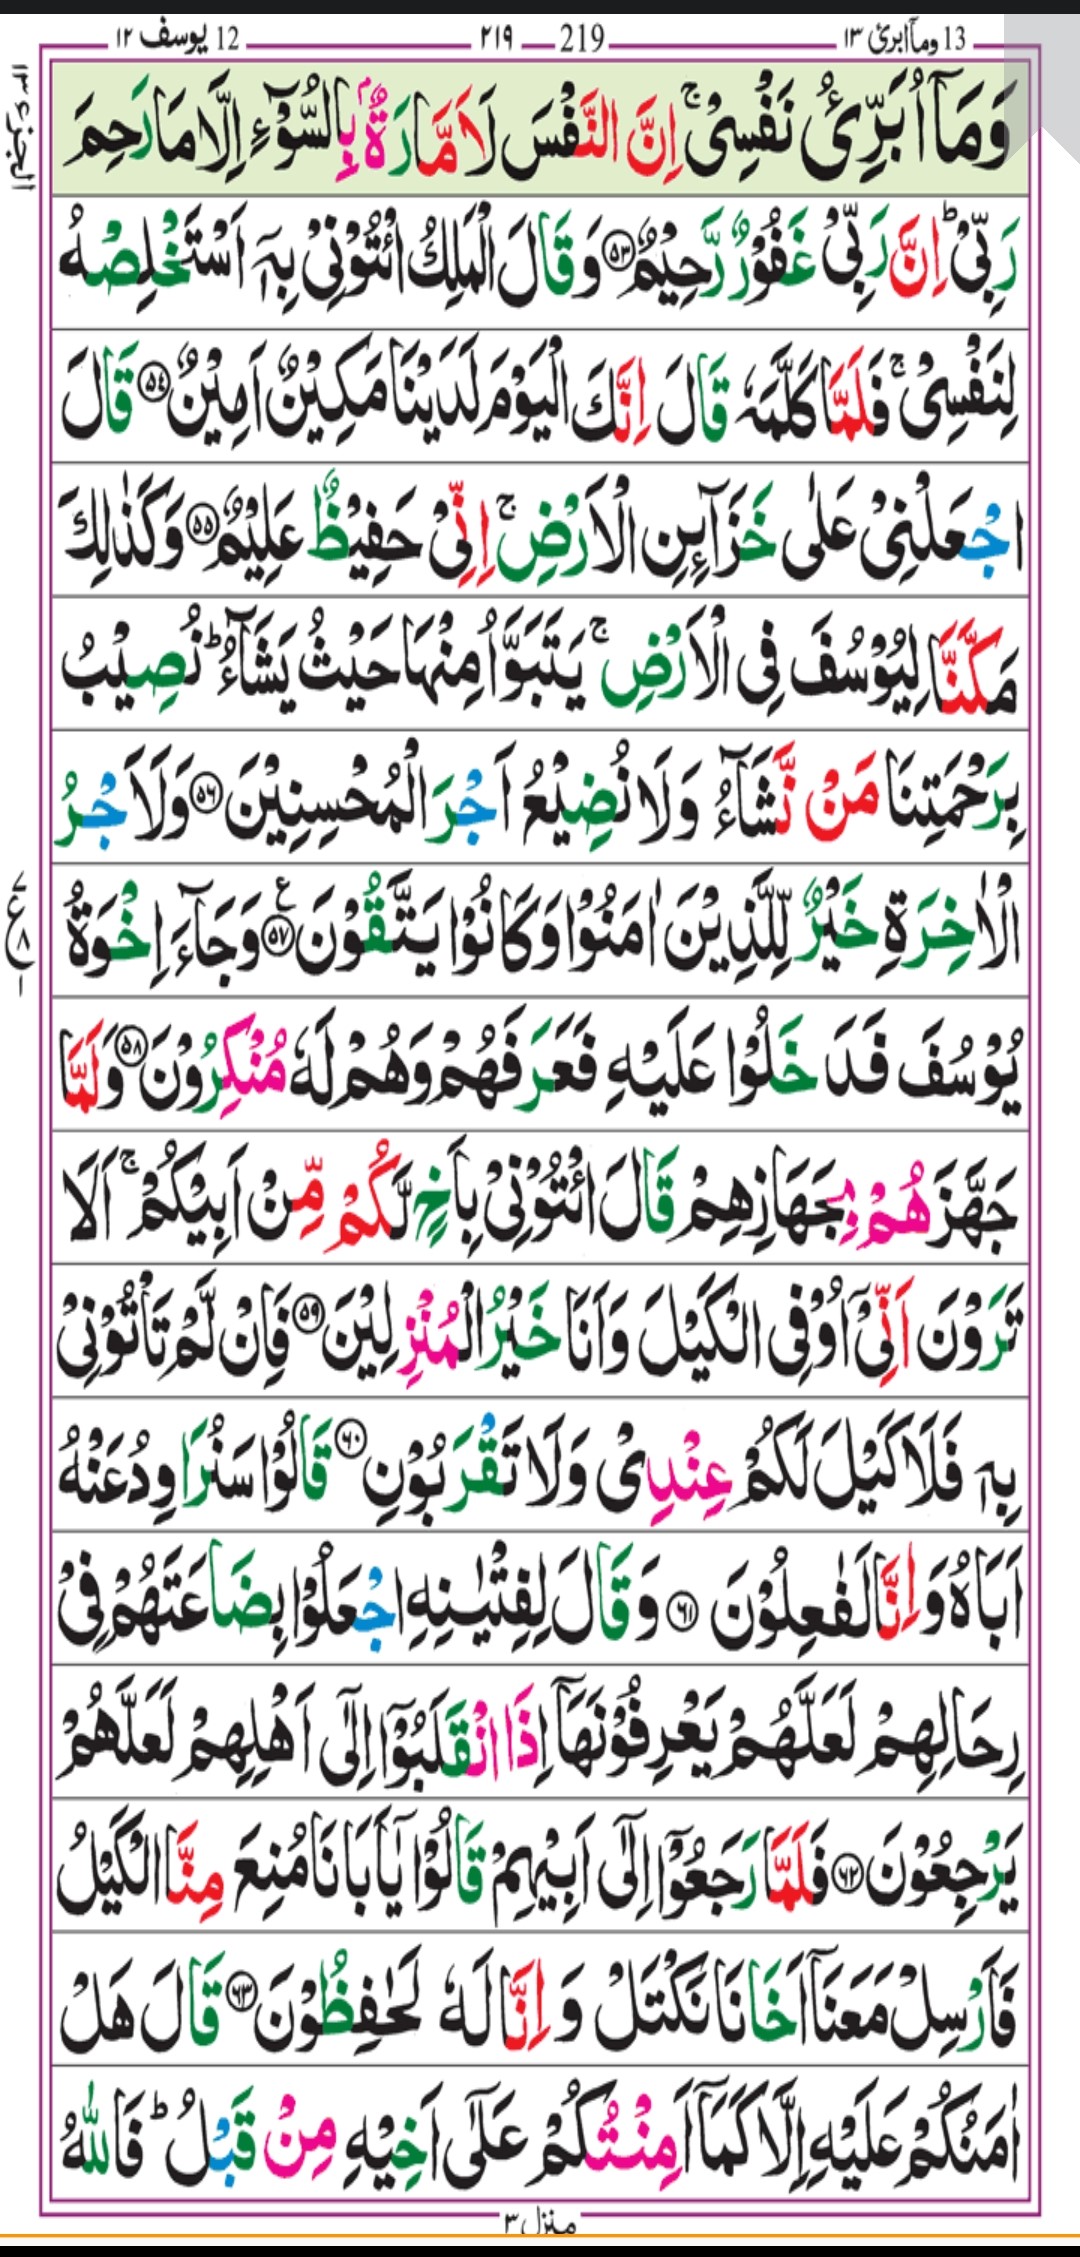 13 وماۤابرئ ١٣ 219 ٢١٩ 12 يوسف ١٢
الجزء ١٣
وَمَاۤ اُبَرِّئُ نَفْسِیْ ۚ اِنَّ النَّفْسَ لَاَمَّارَةٌۢ بِالسُّوْٓءِ اِلَّا مَا رَحِمَ
رَبِّیْ ؕ اِنَّ رَبِّیْ غَفُوْرٌ رَّحِیْمٌ ﴿٥٣﴾ وَقَالَ الْمَلِكُ ائْتُوْنِیْ بِهٖۤ اَسْتَخْلِصْهُ
لِنَفْسِیْ ۚ فَلَمَّا كَلَّمَهٗ قَالَ اِنَّكَ الْیَوْمَ لَدَیْنَا مَكِیْنٌ اَمِیْنٌ ﴿٥٤﴾ قَالَ
اجْعَلْنِیْ عَلٰی خَزَآىِٕنِ الْاَرْضِ ۚ اِنِّیْ حَفِیْظٌ عَلِیْمٌ ﴿٥٥﴾ وَكَذٰلِكَ
مَكَّنَّا لِیُوْسُفَ فِی الْاَرْضِ ۚ یَتَبَوَّاُ مِنْهَا حَیْثُ یَشَآءُ ؕ نُصِیْبُ
بِرَحْمَتِنَا مَنْ نَّشَآءُ وَلَا نُضِیْعُ اَجْرَ الْمُحْسِنِیْنَ ﴿٥٦﴾ وَلَاَجْرُ
الْاٰخِرَةِ خَیْرٌ لِّلَّذِیْنَ اٰمَنُوْا وَكَانُوْا یَتَّقُوْنَ ﴿٥٧﴾ ع وَجَآءَ اِخْوَةُ
٧
ع ٨
١
یُوْسُفَ فَدَخَلُوْا عَلَیْهِ فَعَرَفَهُمْ وَهُمْ لَهٗ مُنْكِرُوْنَ ﴿٥٨﴾ وَلَمَّا
جَهَّزَهُمْ بِجَهَازِهِمْ قَالَ ائْتُوْنِیْ بِاَخٍ لَّكُمْ مِّنْ اَبِیْكُمْ ۚ اَلَا
تَرَوْنَ اَنِّیْۤ اُوْفِی الْكَیْلَ وَاَنَا خَیْرُ الْمُنْزِلِیْنَ ﴿٥٩﴾ فَاِنْ لَّمْ تَاْتُوْنِیْ
بِهٖ فَلَا كَیْلَ لَكُمْ عِنْدِیْ وَلَا تَقْرَبُوْنِ ﴿٦٠﴾ قَالُوْا سَنُرَاوِدُ عَنْهُ
اَبَاهُ وَاِنَّا لَفٰعِلُوْنَ ﴿٦١﴾ وَقَالَ لِفِتْیٰنِهِ اجْعَلُوْا بِضَاعَتَهُمْ فِیْ
رِحَالِهِمْ لَعَلَّهُمْ یَعْرِفُوْنَهَاۤ اِذَا انْقَلَبُوْۤا اِلٰۤی اَهْلِهِمْ لَعَلَّهُمْ
یَرْجِعُوْنَ ﴿٦٢﴾ فَلَمَّا رَجَعُوْۤا اِلٰۤی اَبِیْهِمْ قَالُوْا یٰۤاَبَانَا مُنِعَ مِنَّا الْكَیْلُ
فَاَرْسِلْ مَعَنَاۤ اَخَانَا نَكْتَلْ وَ اِنَّا لَهٗ لَحٰفِظُوْنَ ﴿٦٣﴾ قَالَ هَلْ
اٰمَنُكُمْ عَلَیْهِ اِلَّا كَمَاۤ اَمِنْتُكُمْ عَلٰۤی اَخِیْهِ مِنْ قَبْلُ ؕ فَاللّٰهُ
منزل ٣